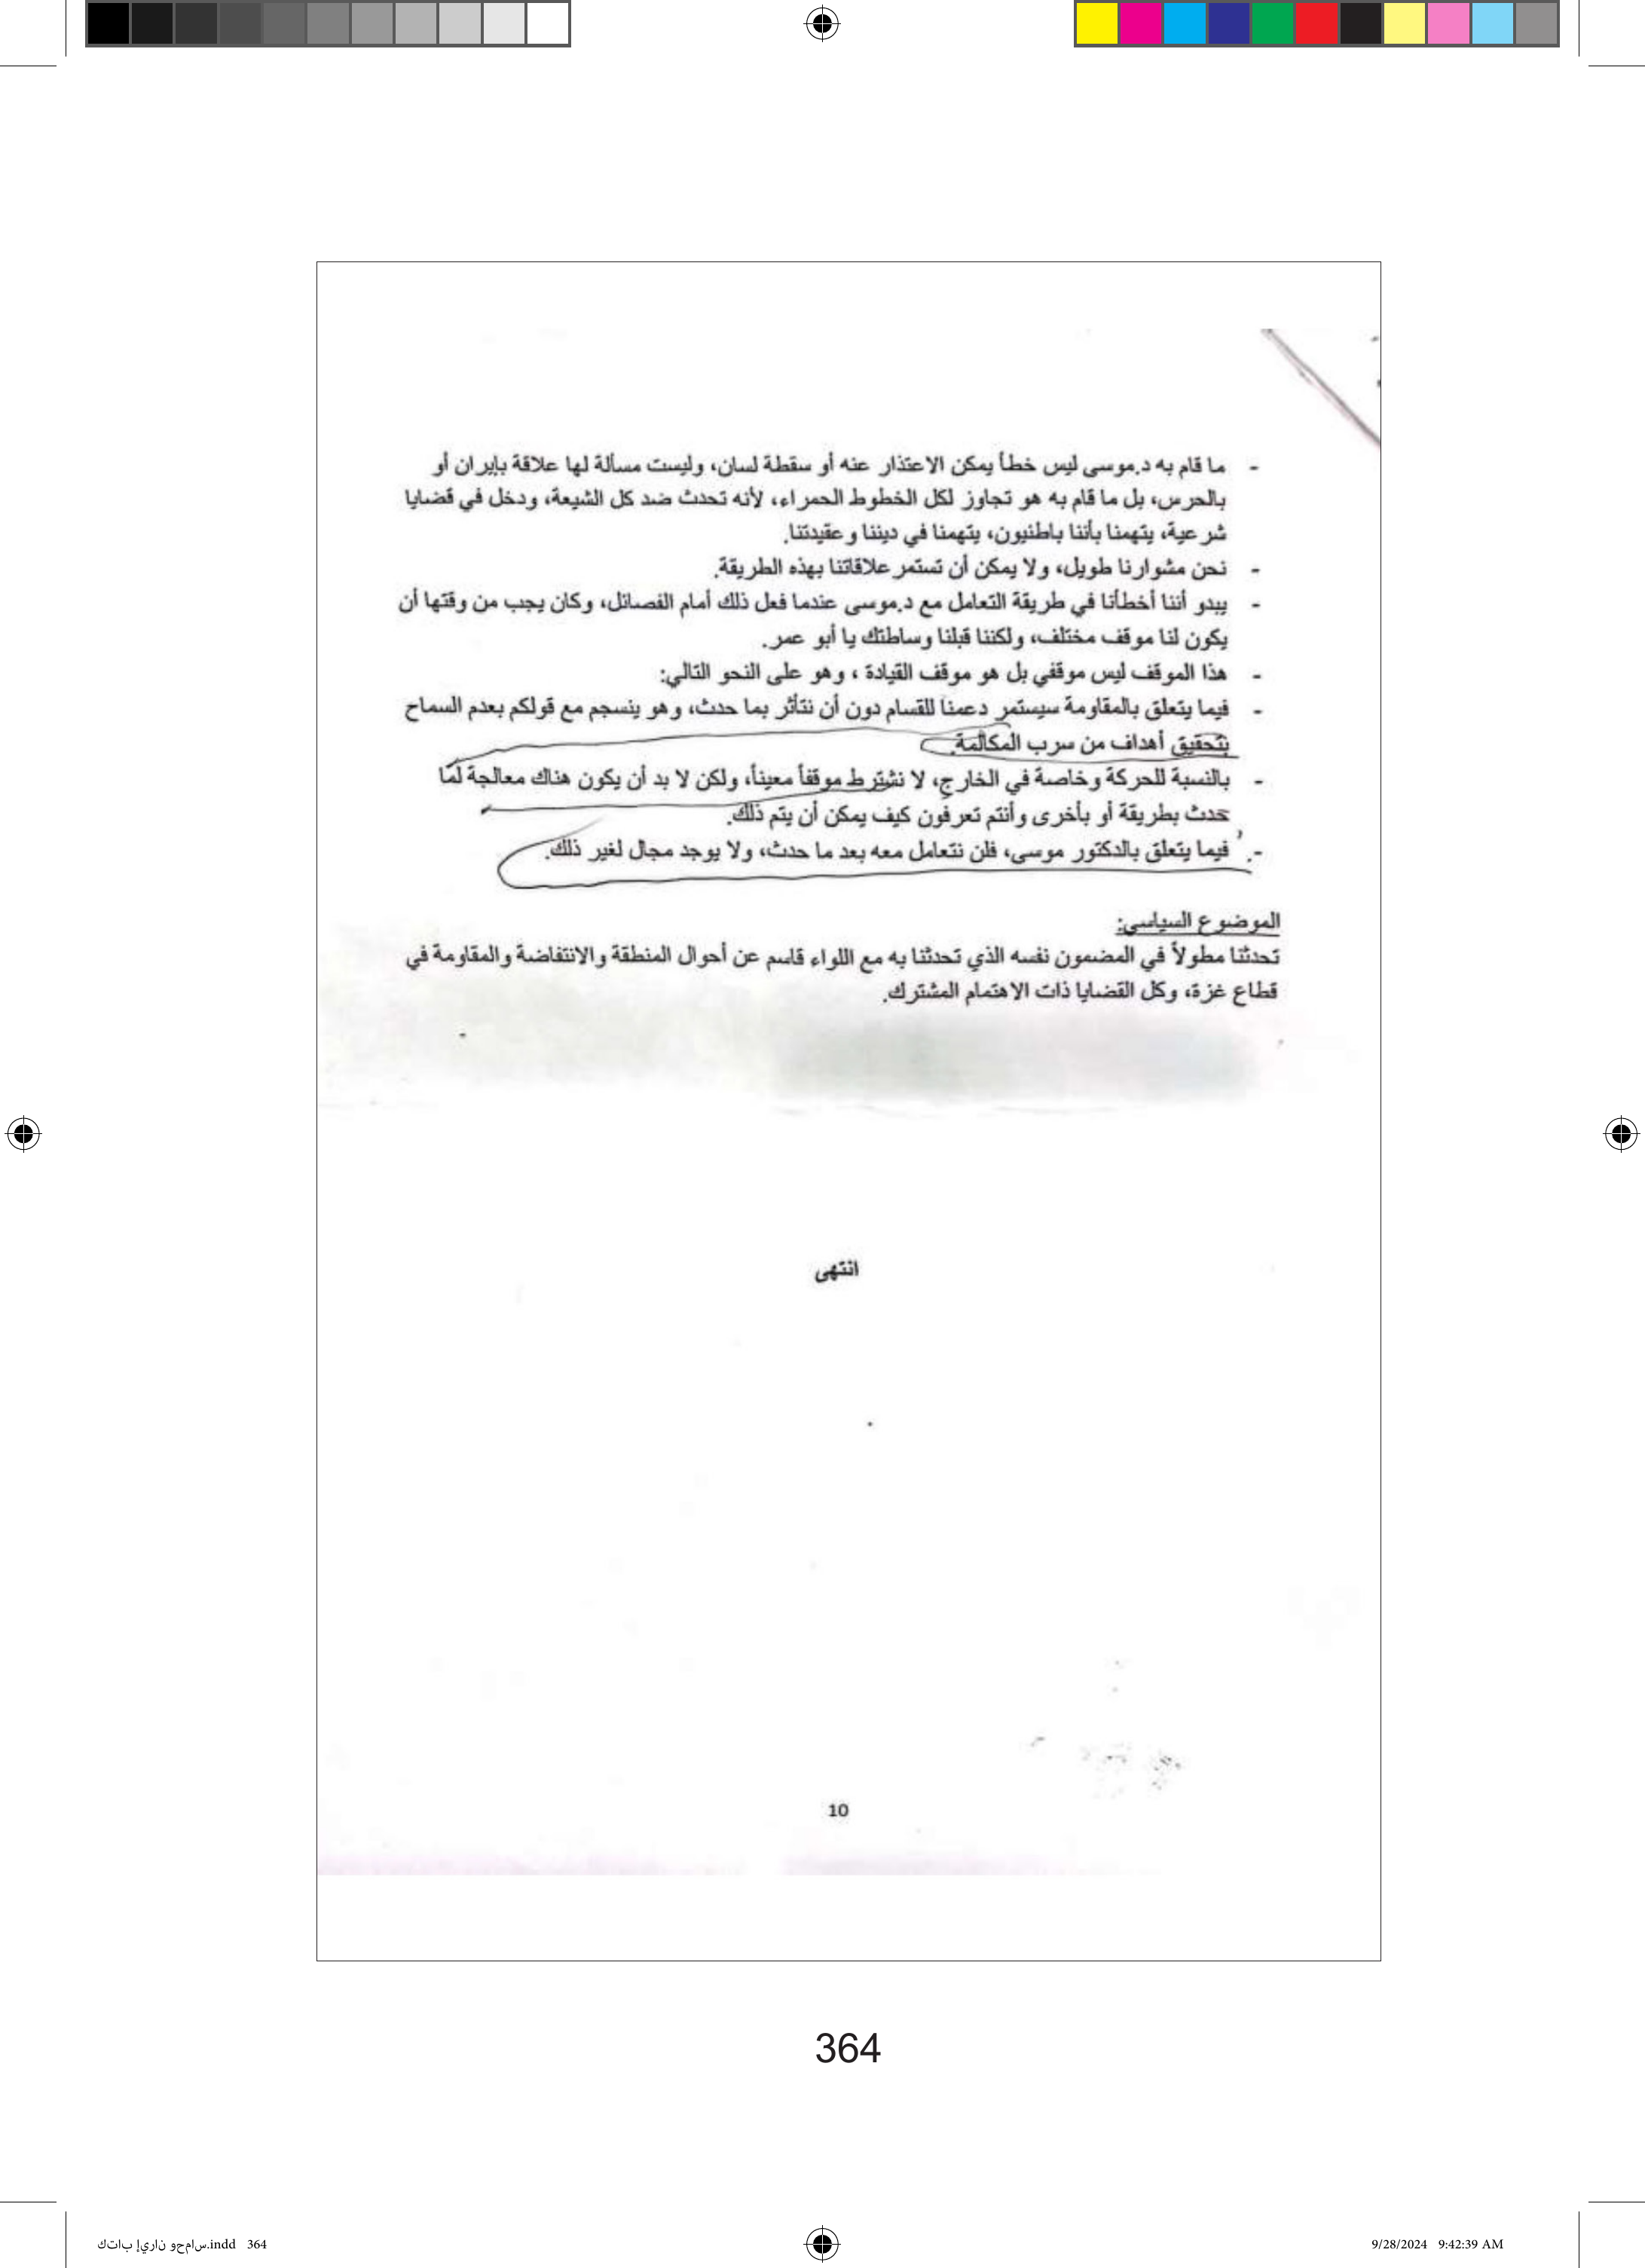 - ما قام به د.موسى ليس خطأ يمكن الاعتذار عنه أو سقطة لسان، وليست مسألة لها علاقة بإيران أو
بالحرس، بل ما قام به هو تجاوز لكل الخطوط الحمراء، لأنه تحدث ضد كل الشيعة، ودخل في قضايا
شرعية، يتهمنا بأننا باطنيون، يتهمنا في ديننا وعقيدتنا.
- نحن مشوارنا طويل، ولا يمكن أن تستمر علاقاتنا بهذه الطريقة.
- يبدو أننا أخطأنا في طريقة التعامل مع د.موسى عندما فعل ذلك أمام الفصائل، وكان يجب من وقتها أن
يكون لنا موقف مختلف، ولكننا قبلنا وساطتك يا أبو عمر.
- هذا الموقف ليس موقفي بل هو موقف القيادة ، وهو على النحو التالي:
- فيما يتعلق بالمقاومة سيستمر دعمنا للقسام دون أن نتأثر بما حدث، وهو ينسجم مع قولكم بعدم السماح
بتحقيق أهداف من سرب المكالمة.
- بالنسبة للحركة وخاصة في الخارج، لا نشترط موقفاً معيناً، ولكن لا بد أن يكون هناك معالجة لما
حدث بطريقة أو بأخرى وأنتم تعرفون كيف يمكن أن يتم ذلك.
- فيما يتعلق بالدكتور موسى، فلن نتعامل معه بعد ما حدث، ولا يوجد مجال لغير ذلك.
الموضوع السياسي:
تحدثنا مطولاً في المضمون نفسه الذي تحدثنا به مع اللواء قاسم عن أحوال المنطقة والانتفاضة والمقاومة في
قطاع غزة، وكل القضايا ذات الاهتمام المشترك.
انتهى
10
364
كتاب إيران وحماس.indd 364
9/28/2024 9:42:39 AM